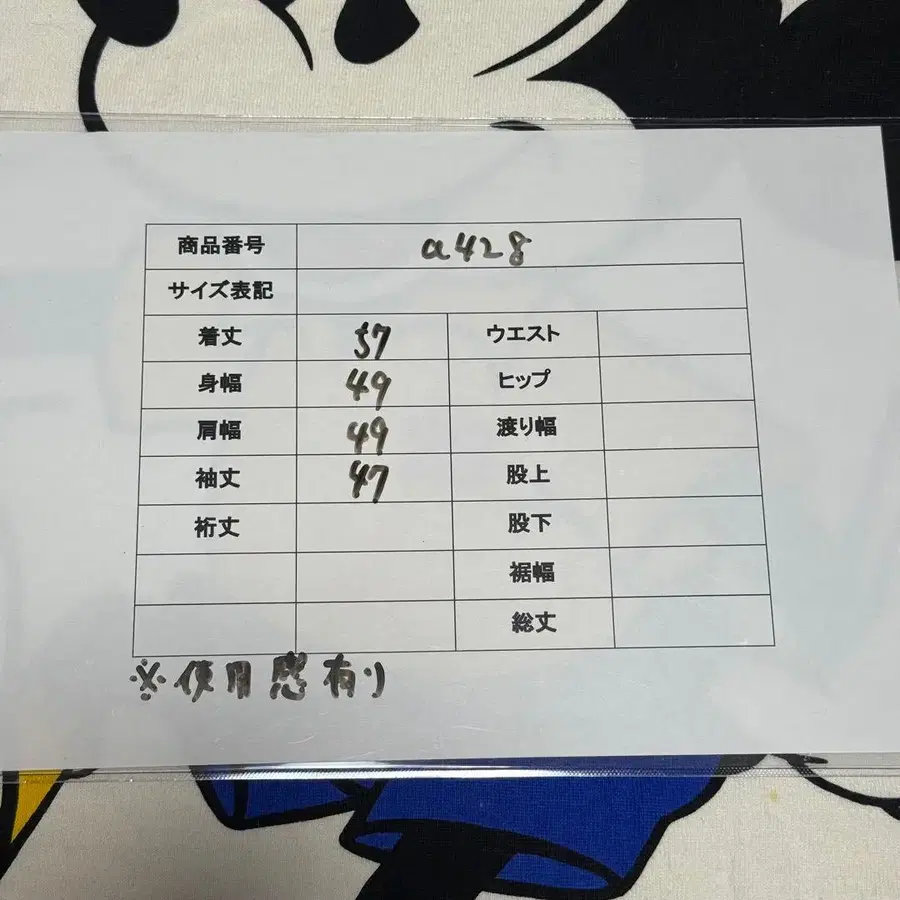 商品番号 a428
サイズ表記
着丈 57 ウエスト
身幅 49 ヒップ
肩幅 49 渡り幅
袖丈 47 股上
裄丈 股下
裾幅
総丈
※使用感有り